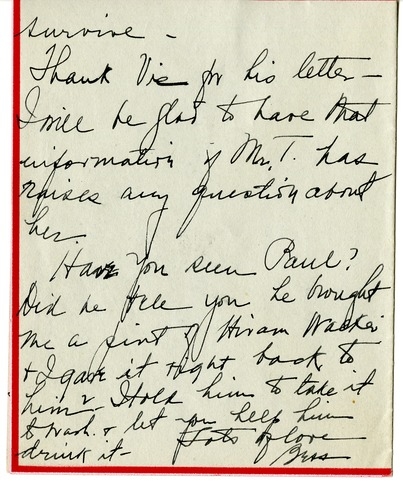 survive -
Thank Vic for his letter -
I will be glad to have that
information if Mr. T. has
raises any question about
her.
Have you seen Paul?
Did he tell you he brought
me a pint of Hiram Walker
& I gave it right back to
him? - I told him to take it
to Wash. & let you help him
drink it - Lots of love
Bess